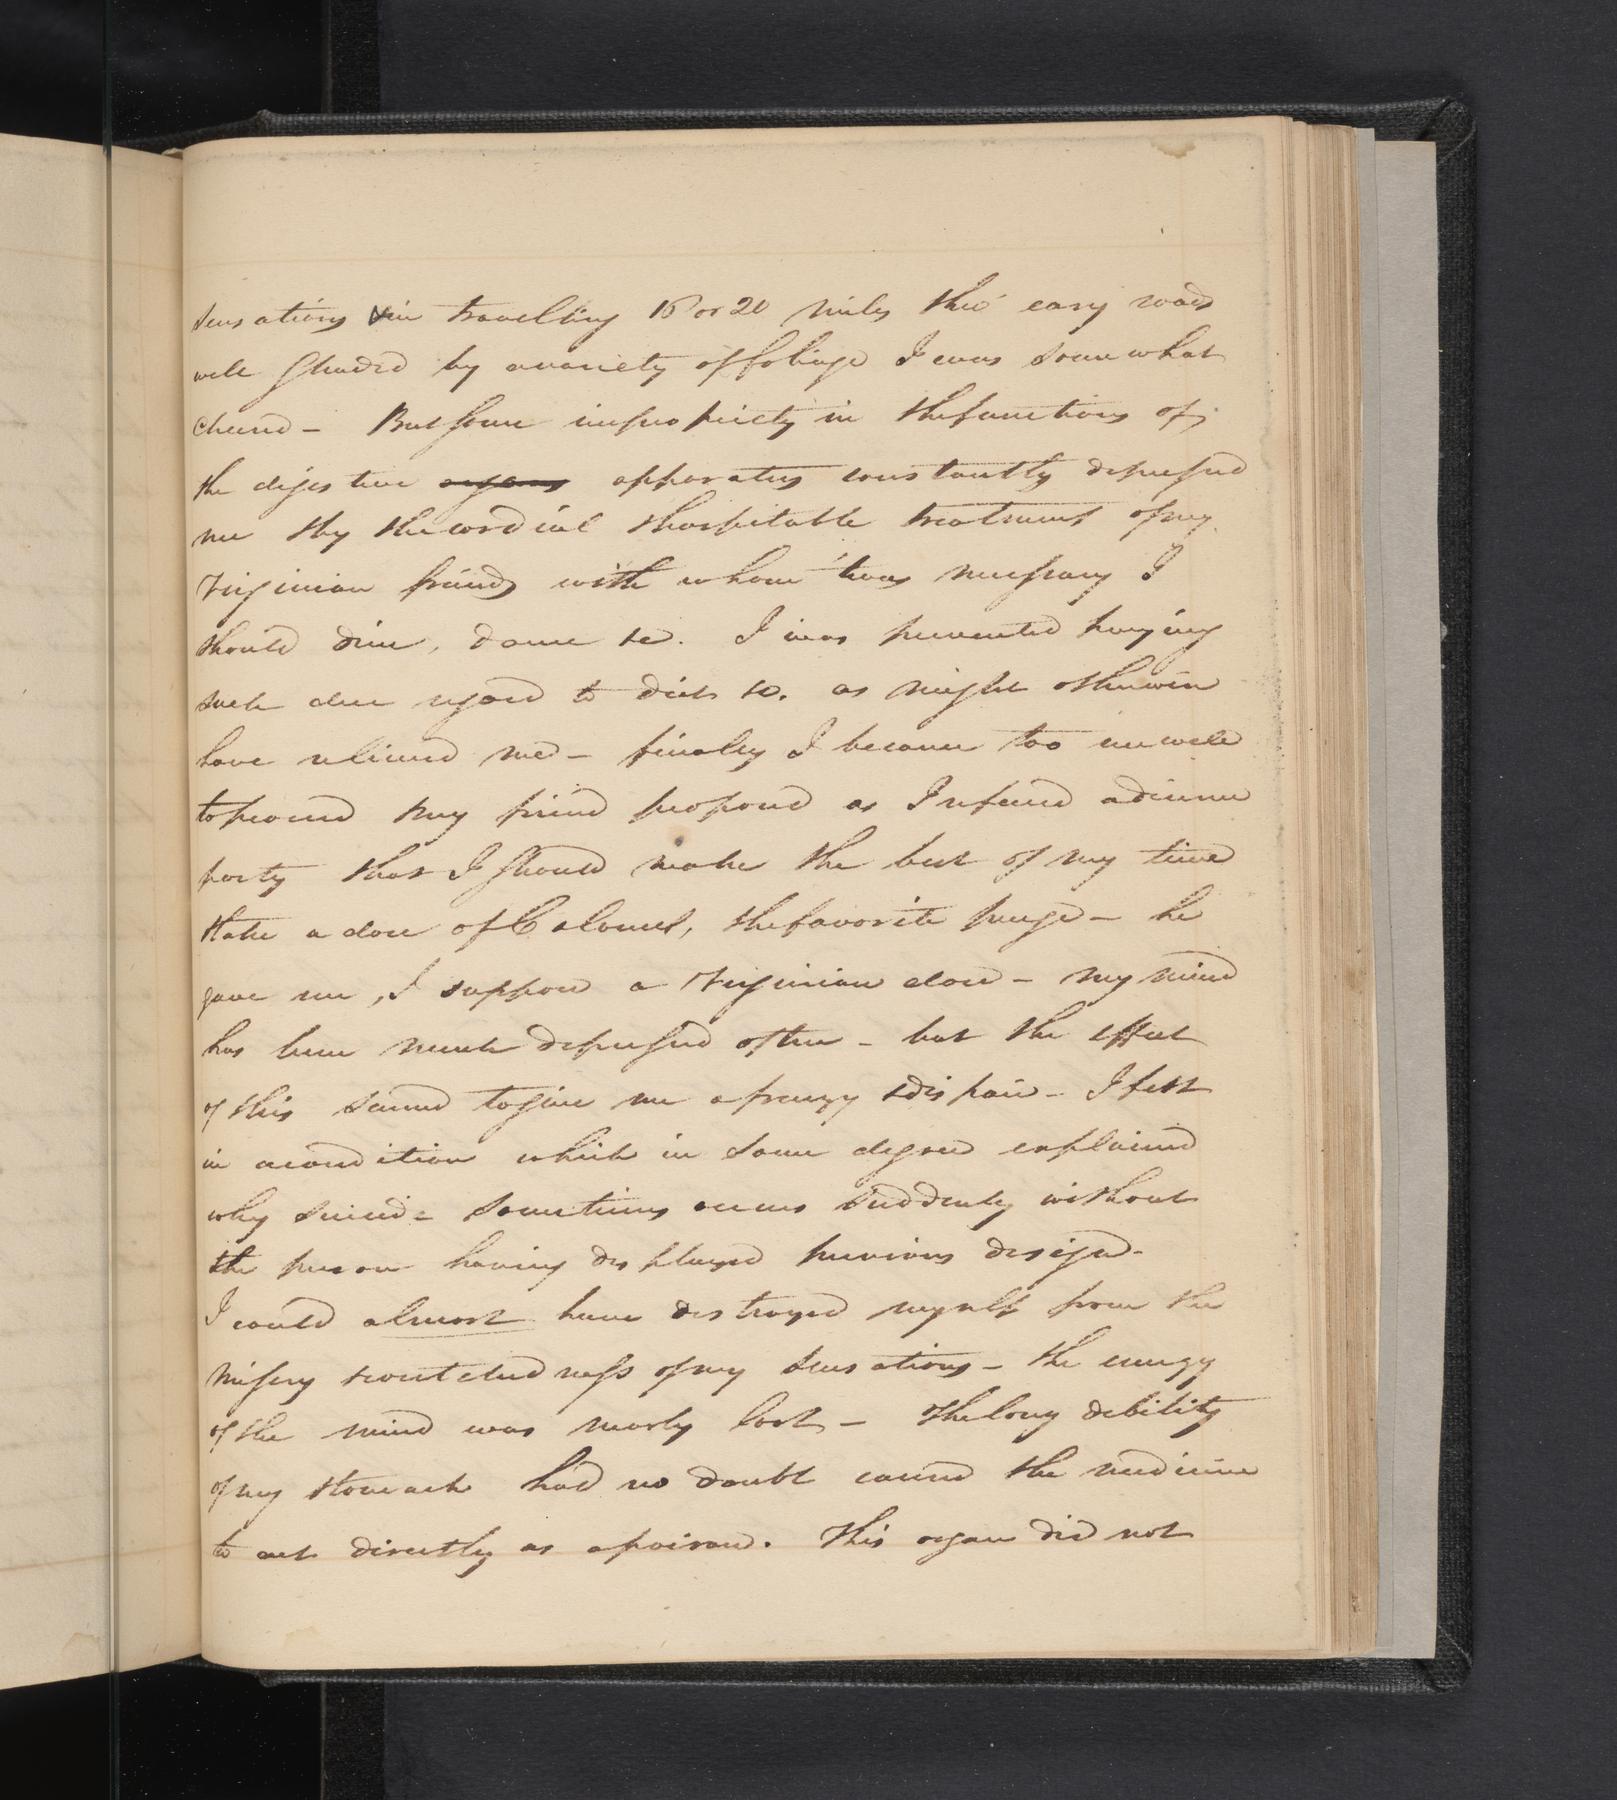 sensations & in travelling 18 or 20 miles thro' easy roads
well shaded by a variety of foliage I was somewhat
cheered – But some impropriety in the functions of
the digestive organs apparatus constantly depressed
me & by the cordial & hospitable treatment of my
Virginian friends with whom 'twas necessary I
should dine, dance &c. I was prevented paying
such due regard to diet &c. as might otherwise
have relieved me – finally I became too unwell
to proceed my friend proposed as I refused a dinner
party that I should make the best of my time
& take a dose of Calomel, the favorite purge – he
gave me, I suppose a Virginian dose – my mind
has been much depressed often – but the effect
of this seemed to give me a frenzy & dispair – I felt
in a condition which in some degree explained
why suicide sometimes occurs suddenly without
the person having displayed previous design –
I could almost have destroyed myself from the
misery & wretchedness of my sensations – the energy
of the mind was nearly lost – The long debility
of my stomach had no doubt caused the medicine
to act directly as a poison. This organ did not